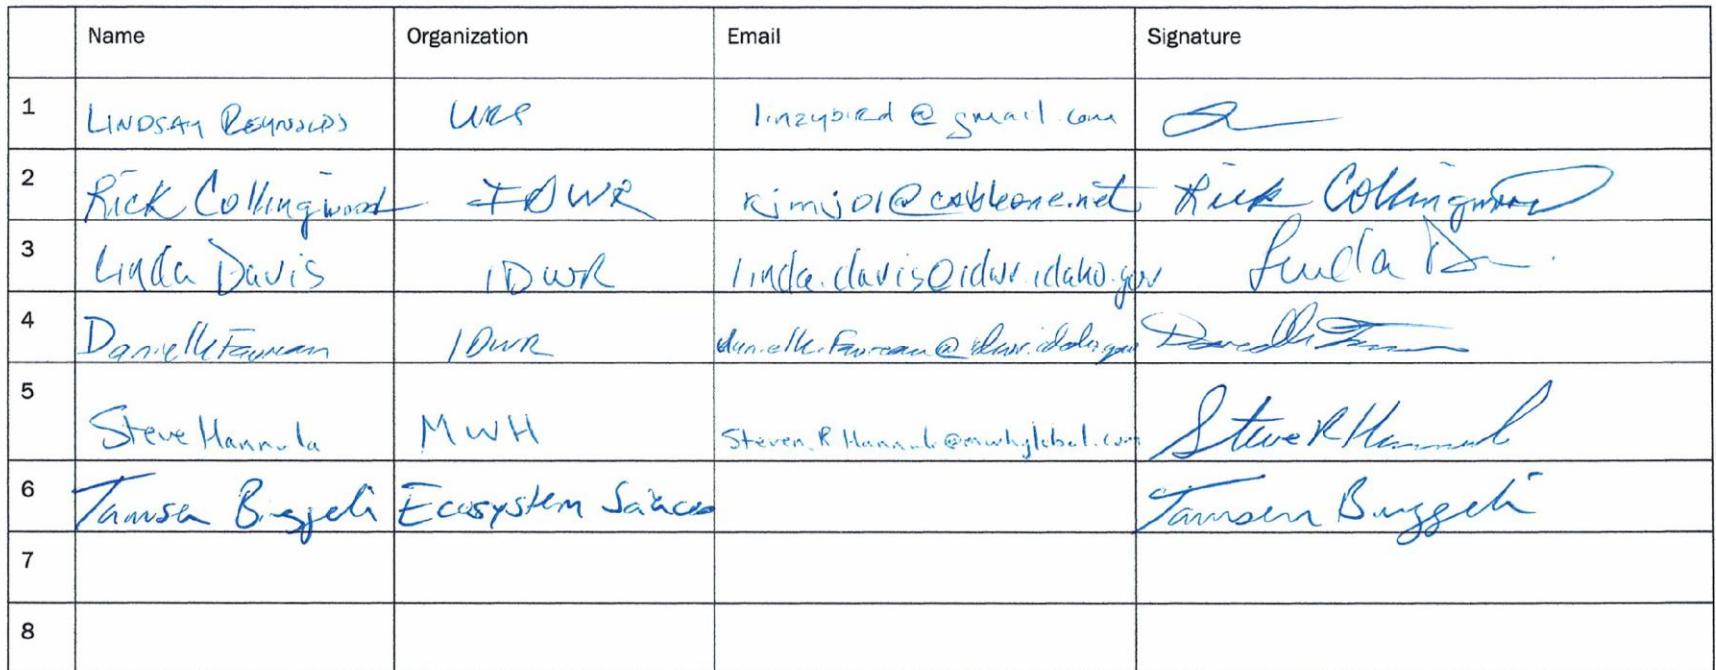 Name Organization Email Signature
1 LINDSAY REYNOLDS URS linzybird@gmail.com
2 Rick Collingwood IDWR kimijo1@cableone.net Rick Collingwood
3 Linda Davis IDWR linda.davis@idwr.idaho.gov Linda
4 Danielle Favreau IDWR danielle.Favreau@idwr.idaho.gov
5 Steve Hannula MWH Steven.R.Hannula@mwhglobal.com Steve R Hannula
6 Tamsen Binggeli Ecosystem Sciences Tamsen Binggeli
7
8